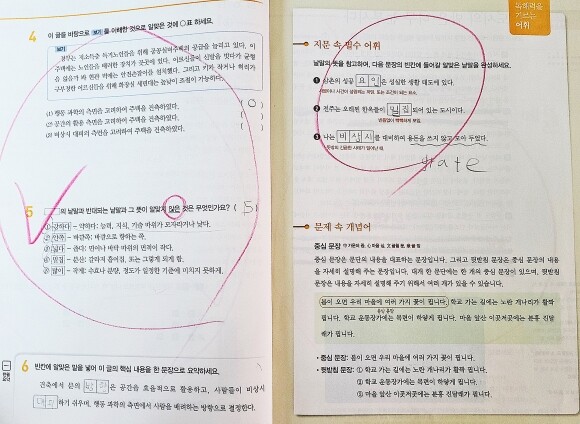 4 이 글을 바탕으로 보기 를 이해한 것으로 알맞은 것에 ○표 하세요.
보기
정부는 저소득층 독거노인들을 위해 공공실버주택의 공급을 늘리고 있다. 이
주택에는 노인들을 배려한 장치가 곳곳에 있다. 어르신들이 신발을
을 않을까 봐 현관 벽에는 안전손잡이를 설치했다. 그리고 키가 작거나 허리가
구부정한 어르신들을 위해 화장실 세면대는 높낮이 조절이 가능하다.
(1) 행동 과학의 측면을 고려하여 주택을 건축하였다. ( ○ )
(2) 공간의 활용 측면을 고려하여 주택을 건축하였다. ( )
(3) 비상시 대비의 측면을 고려하여 주택을 건축하였다. ( )
5 의 낱말과 반대되는 낱말과 그 뜻이 알맞지 않은 것은 무엇인가요? ( 5 )
① 강하다 – 약하다: 능력, 지식, 기술 따위가 모자라거나 낮다.
② 안쪽 – 바깥쪽: 바깥으로 향하는 쪽.
③ 넓다 – 좁다: 면이나 바닥 따위의 면적이 작다.
④ 밀집 – 분산: 갈라져 흩어짐. 또는 그렇게 되게 함.
⑤ – 작게: 수효나 분량, 정도가 일정한 기준에 미치지 못하게.
6 빈칸에 알맞은 말을 넣어 이 글의 핵심 내용을 한 문장으로 요약하세요.
건축에서 문의 은 공간을 효율적으로 활용하고, 사람들이 비상시
하기 쉬우며, 행동 과학의 측면에서 사람을 배려하는 방향으로 결정한다.
독해력을
키우는
어휘
지문 속 필수 어휘
낱말의 뜻을 참고하여, 다음 문장의 빈칸에 들어갈 알맞은 낱말을 완성하세요.
❶ 삼촌의 성공 요인 은 성실한 생활 태도에 있다.
❷ 전주는 오래된 한옥들이 밀집 되어 있는 도시이다.
빈틈없이 빽빽하게 모임.
❸ 나는 비상시 를 대비하여 용돈을 쓰지 않고 모아 두었다.
뜻밖의 긴급한 사태가 일어난 때.
문제 속 개념어
중심 문장
중심 문장은 문단의 내용을 대표하는 문장입니다. 그리고 뒷받침 문장은 중심 문장의 내용
을 자세히 설명해 주는 문장입니다. 대개 한 문단에는 한 개의 중심 문장이 있으며, 뒷받침
문장은 내용을 자세히 설명해 주기 위해서 여러 개가 있을 수 있습니다.
봄이 오면 우리 마을에 여러 가지 꽃이 핍니다. 학교 가는 길에는 노란 개나리가 활짝
중심 문장
핍니다. 학교 운동장가에는 목련이 하얗게 핍니다. 마을 앞산 이곳저곳에는 분홍 진달
래가 핍니다.
• 중심 문장: 봄이 오면 우리 마을에 여러 가지 꽃이 핍니다.
• 뒷받침 문장: ① 학교 가는 길에는 노란 개나리가 활짝 핍니다.
② 학교 운동장가에는 목련이 하얗게 핍니다.
③ 마을 앞산 이곳저곳에는 분홍 진달래가 핍니다.